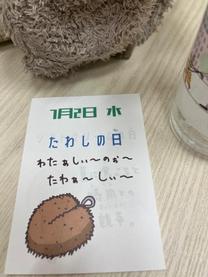 7月2日 水
たわしの日
わたぁしぃ〜のぉ〜
たわぁ〜しぃ〜